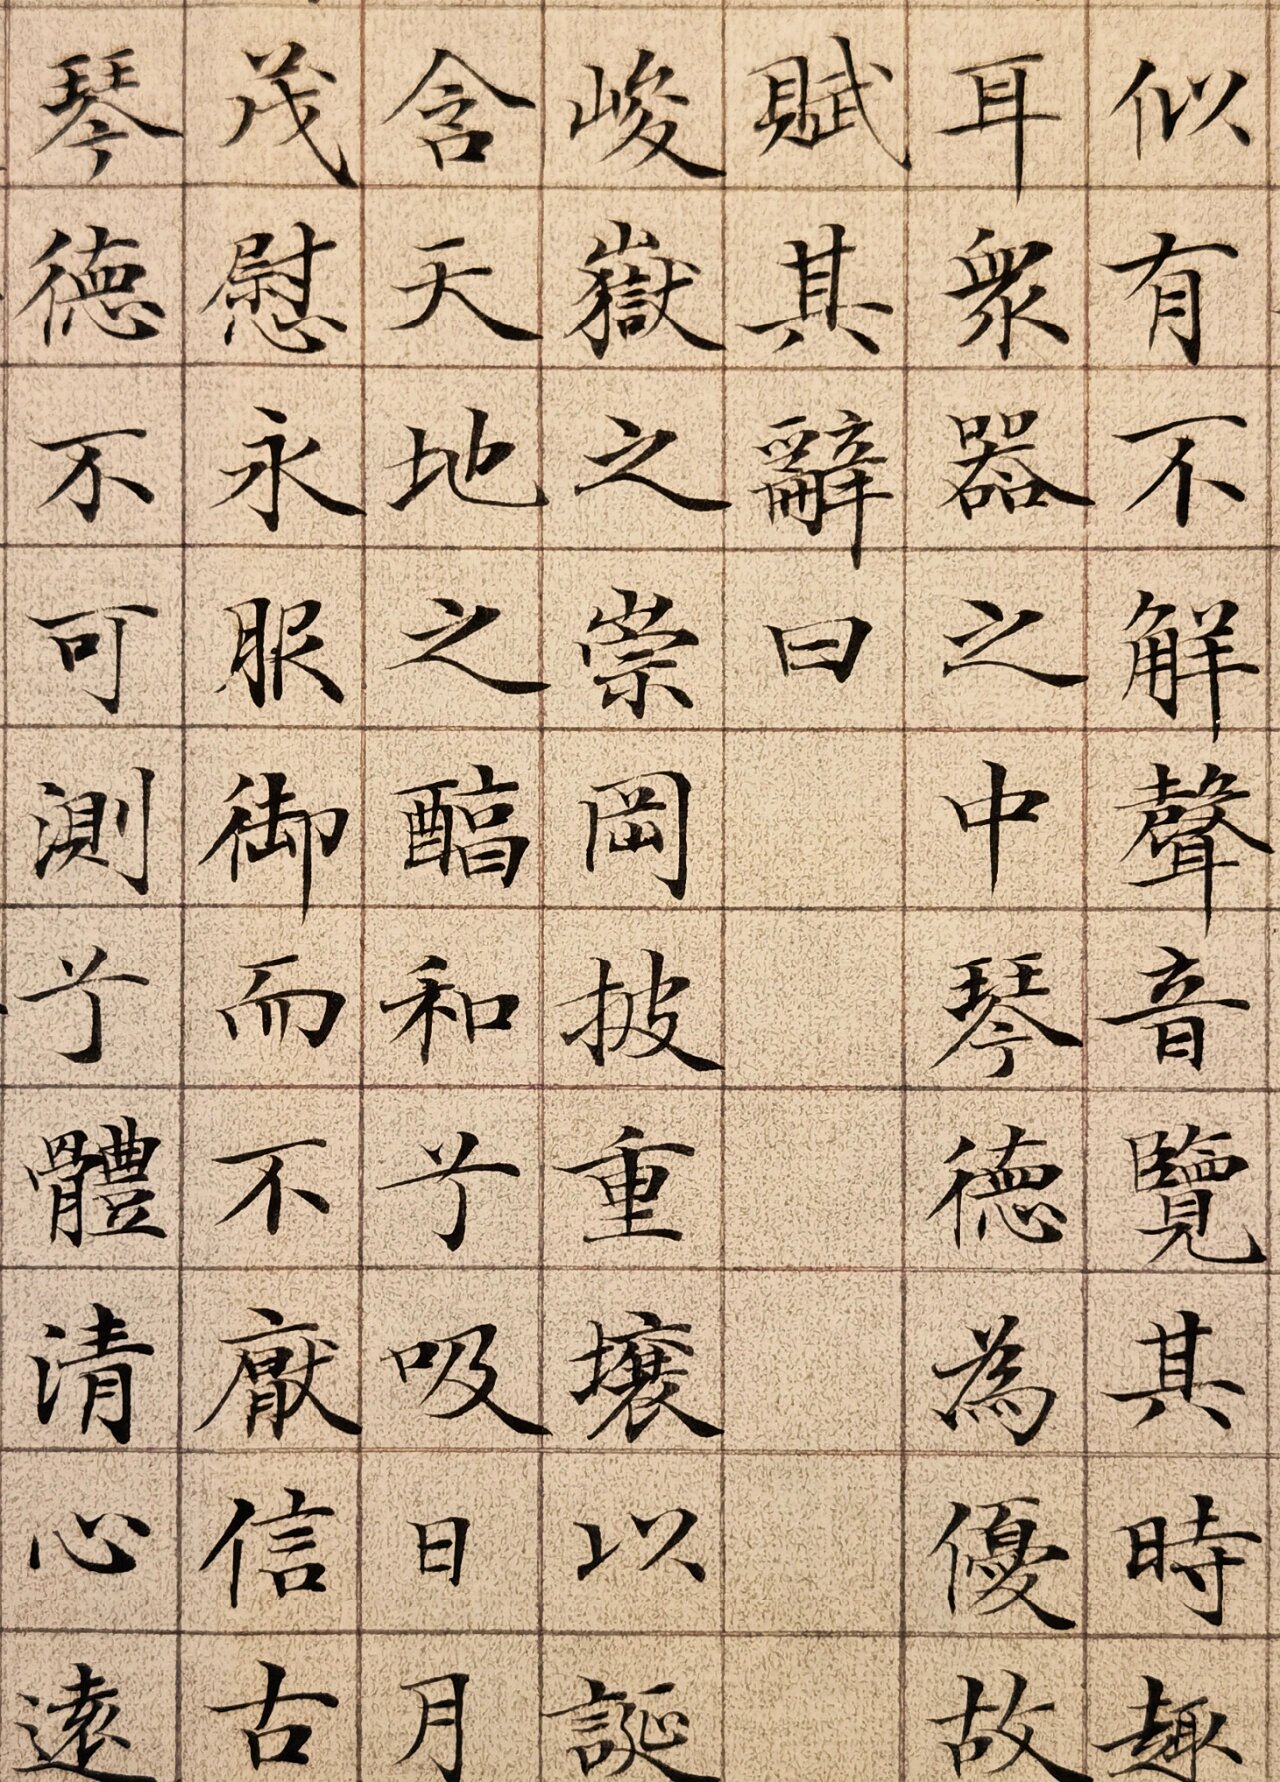 似有不解聲音覽其時趣
耳衆器之中琴德為優故
賦其辭曰
峻嶽之崇岡披重壤以誕
含天地之醇和兮吸日月
茂慰永服御而不厭信古
琴德不可測兮體清心遠